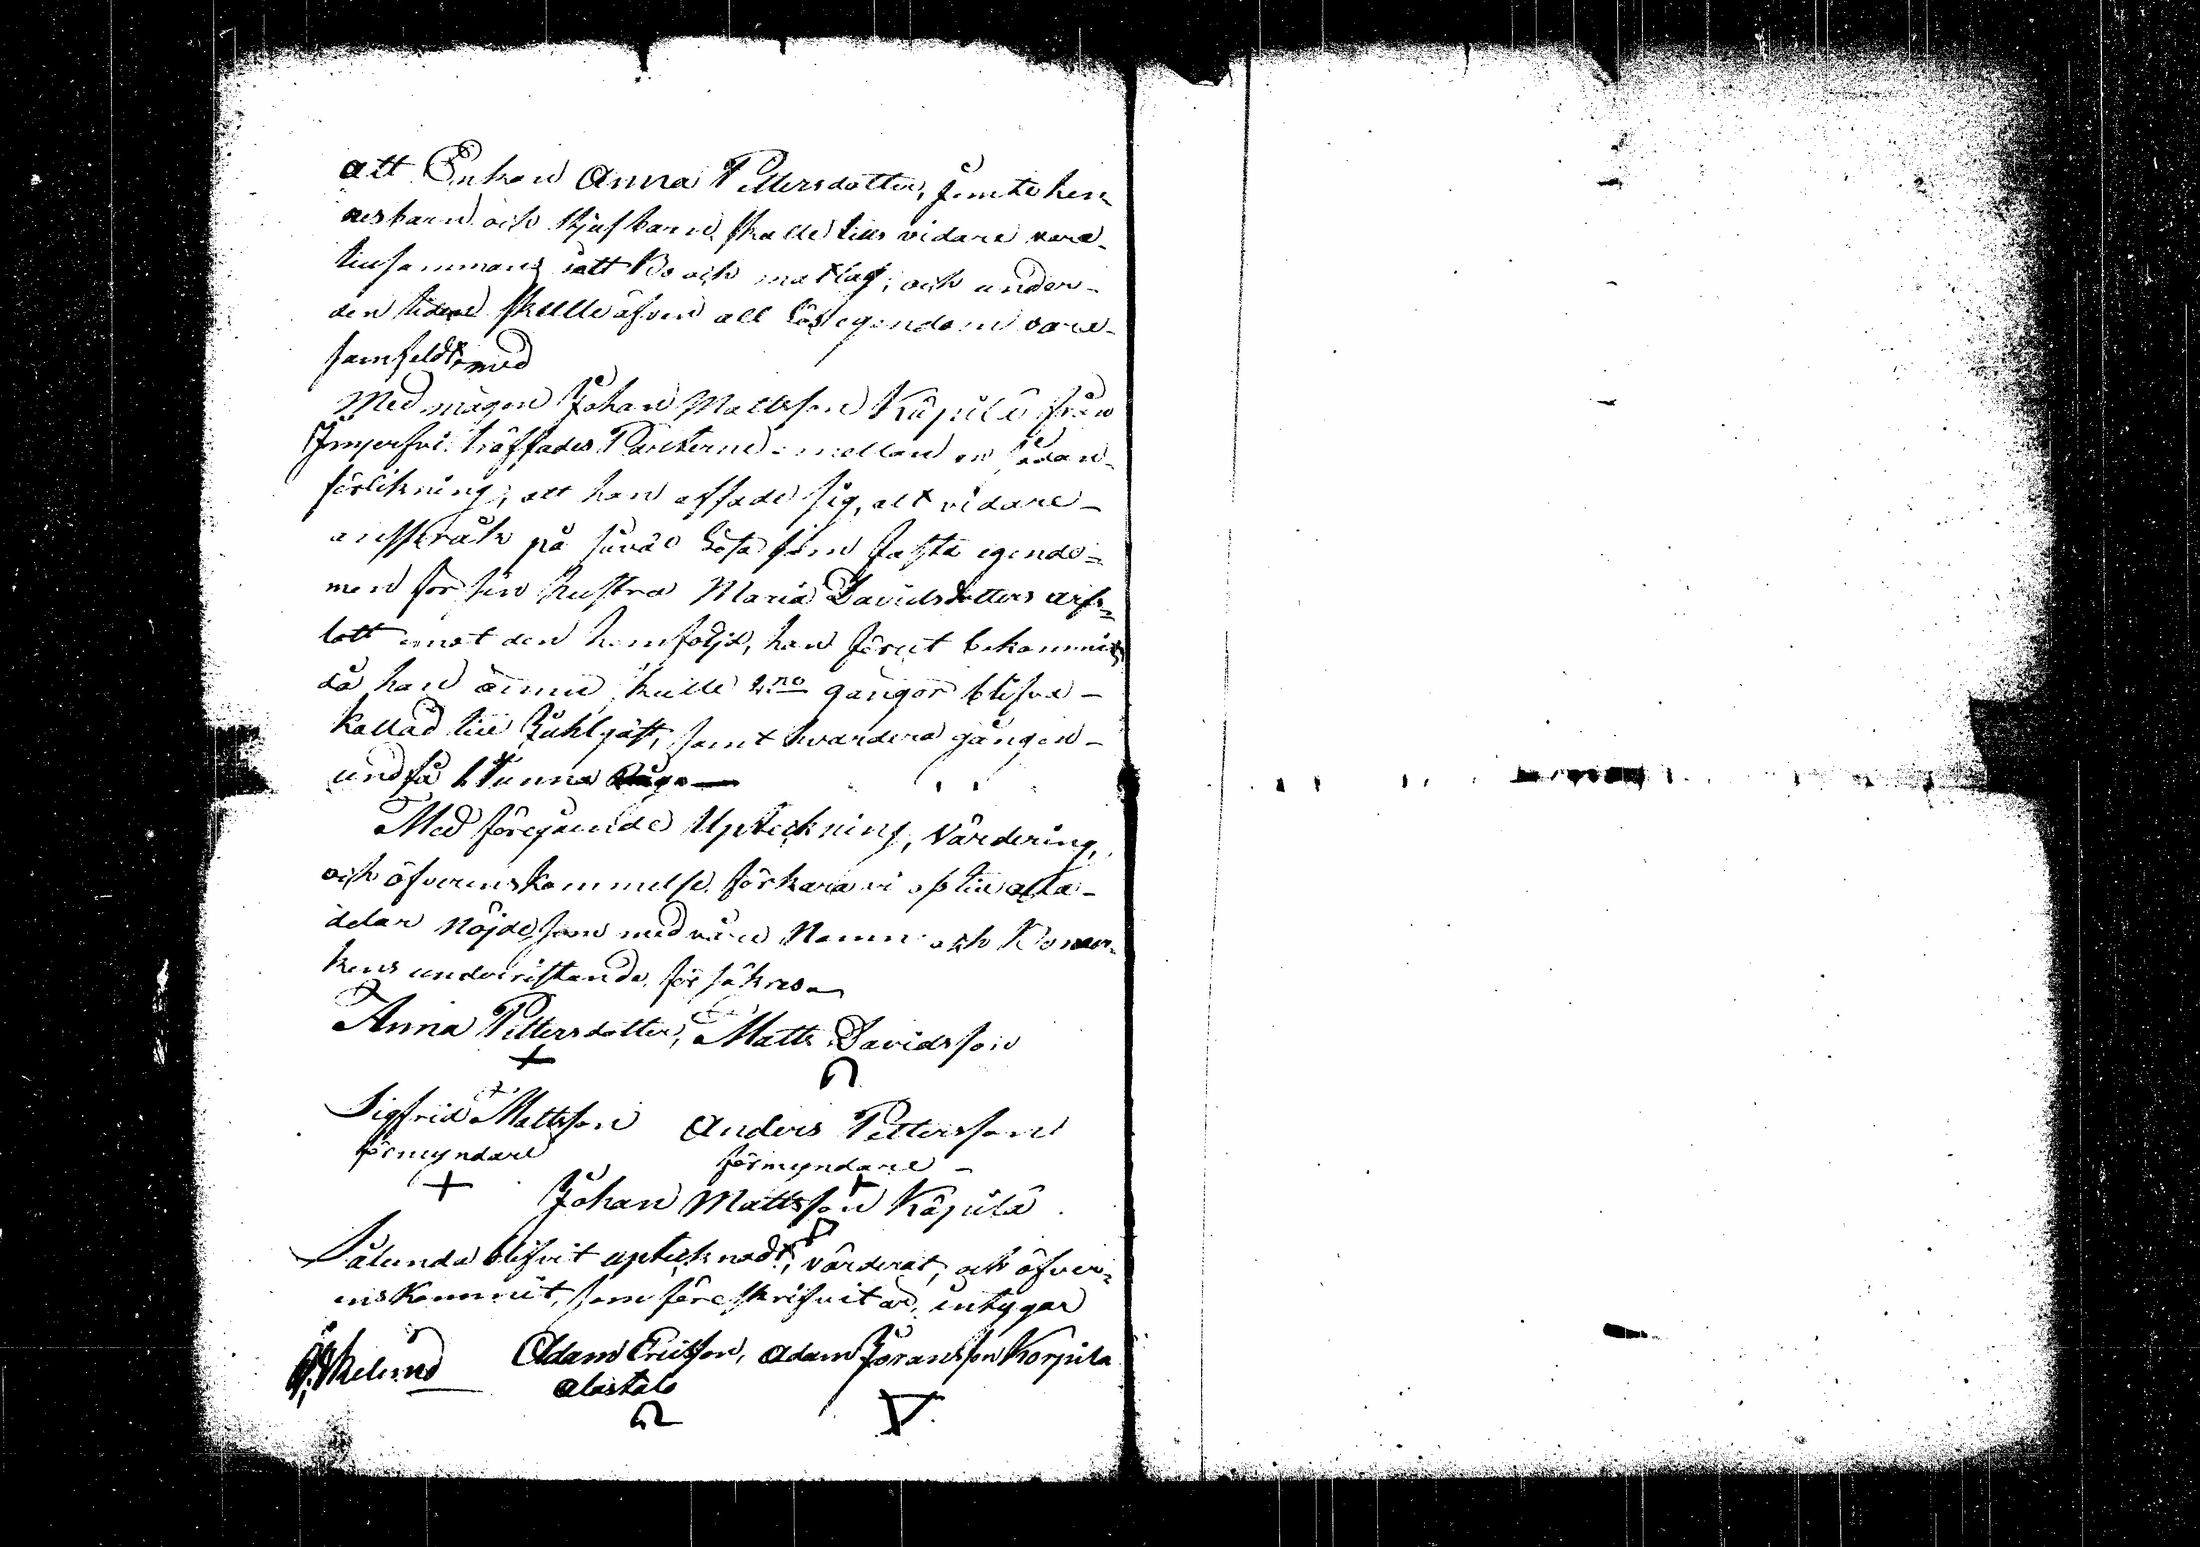 att Enkan Anna Pettersdotter, jemte hen-
nes barn och stjufbarn, skulle tills vidare vara
tillsammans i ett Bo och matlag; och under
den tiden skulle äfven all lös egendom vara
samfeldt.
Med mågen Johan Mattsson Käpilä från
Jmjerfvi träffades Parterne emellan en sådan
förlikning, att han afsade sig, allt vidare
anspråk på såväl lösa som fasta egendo-
men för sin hustru Maria Davidsdotters arfs-
lott emot den hemföljd, han förut bekommit,
då han ännu skulle 2:ne gånger blifva
kallad till Juhlgäst, samt hvardera gången
undfå 1 Tunna Råga
Med föregående Upteckning, Värdering,
och öfverenskommelse, förklara vi oss till alla
delar nöjde, som med våre Namn och Bomär-
kens undersättande, försäkras
Anna Pettersdotter, Matts Davidsson
Sigfrid Mattsson Anders Pettersson
förmyndare förmyndare
Johan Mattsson Käpilä
Sålunda blifvit uptecknadt, värderat, och öfver-
enskommit, som föreskrifvit är, intygar
Adam Ericsson, Adam Jöransson Korpila
Alastalo